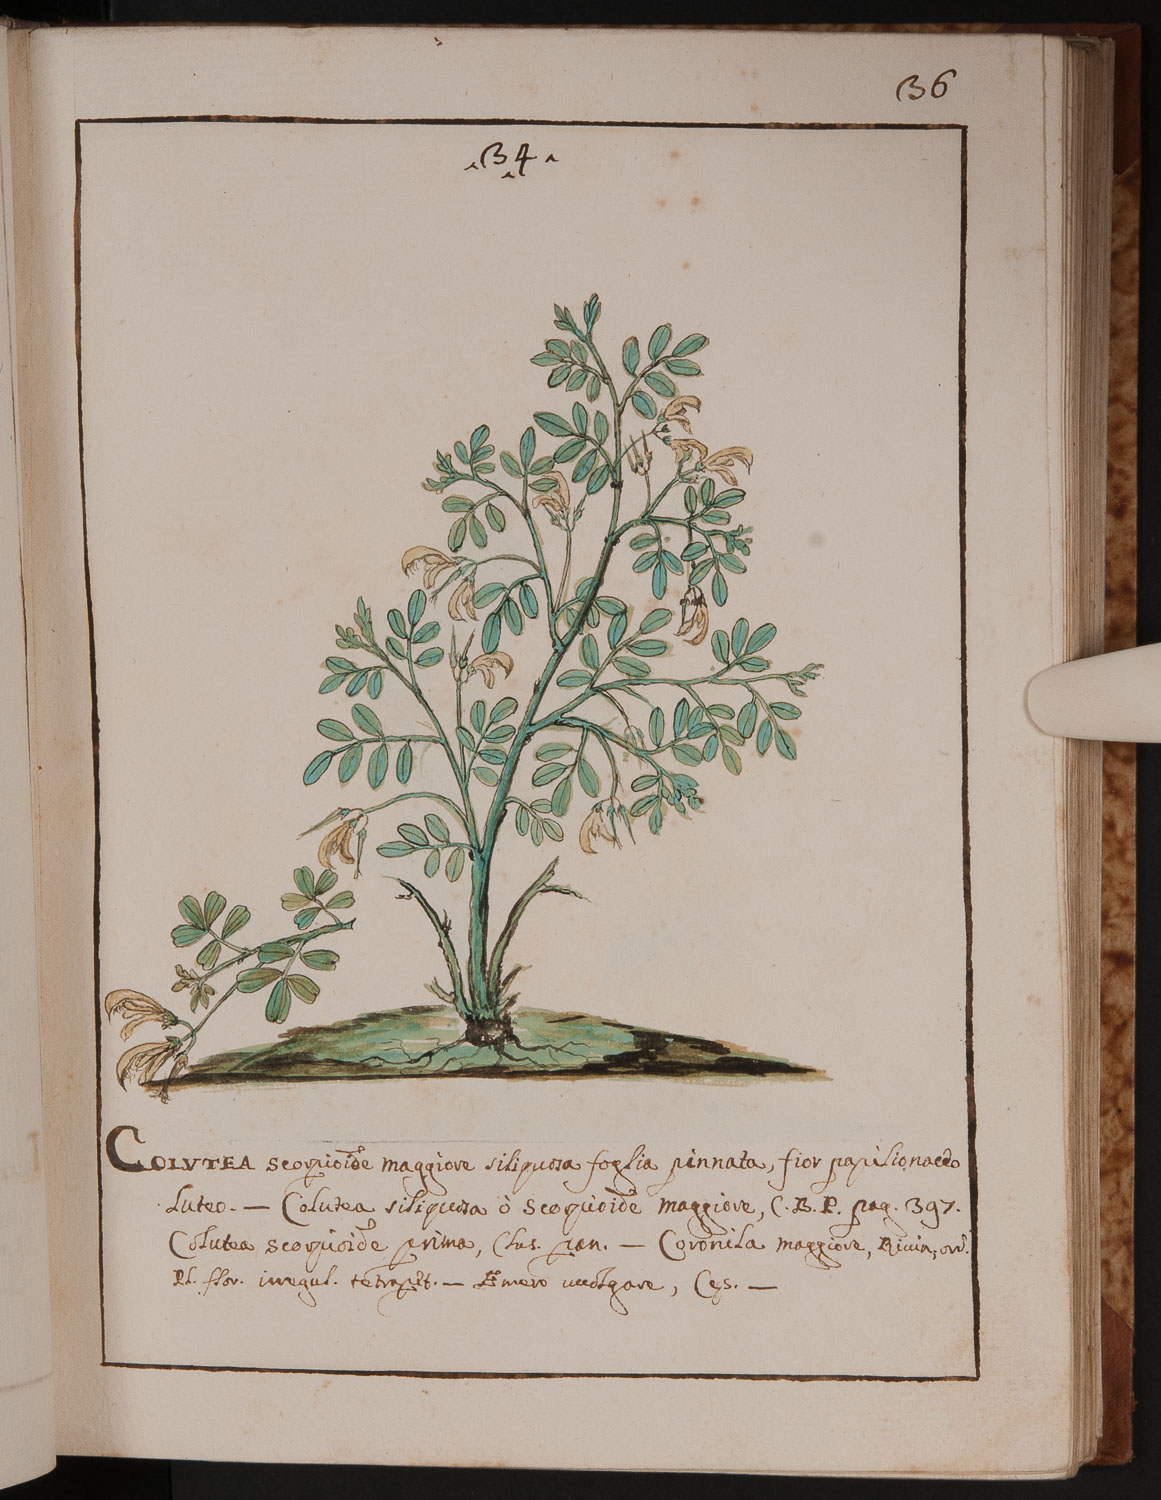 36
34
COLVTEA scorpioide maggiore siliquosa foglia pinnata, fior papilionaceo
luteo. — Colutea siliquosa ò scorpioide maggiore, C. B. P. pag. 397.
Colutea scorpioide prima, Clus. pan. — Coronila maggiore, Riuin, ord.
Pl. flor. irregul. tetrapet. — Emero uuolgare, Ces. —